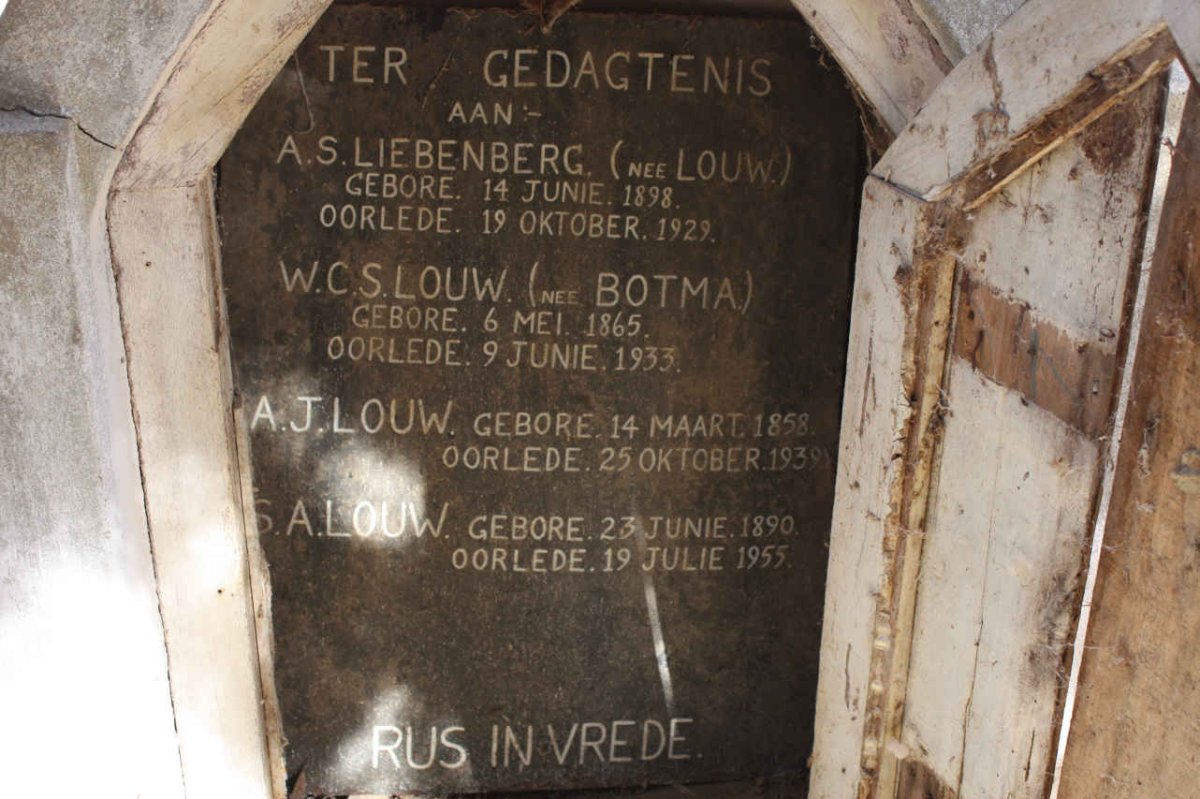 TER GEDAGTENIS
AAN:-
A.S.LIEBENBERG. (NEE LOUW.)
GEBORE. 14 JUNIE. 1898.
OORLEDE. 19 OKTOBER. 1929.
W.C.S.LOUW. (NEE BOTMA.)
GEBORE. 6 MEI. 1865.
OORLEDE. 9 JUNIE. 1933.
A.J.LOUW. GEBORE. 14 MAART. 1858.
OORLEDE. 25 OKTOBER. 1939.
S.A.LOUW. GEBORE. 23 JUNIE. 1890.
OORLEDE. 19 JULIE 1955.
RUS IN VREDE.